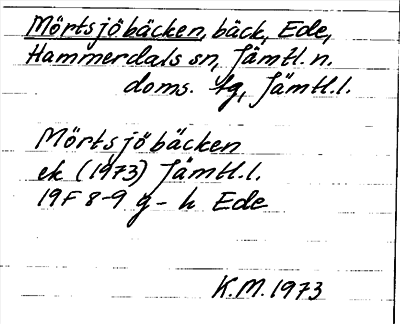 Mörtsjöbäcken, bäck, Ede,
Hammerdals sn, Jämtl. n.
doms. tg, Jämtl.l.
Mörtsjöbäcken
ek (1973) Jämtl.l.
19F 8-9 g-h Ede
K.M. 1973